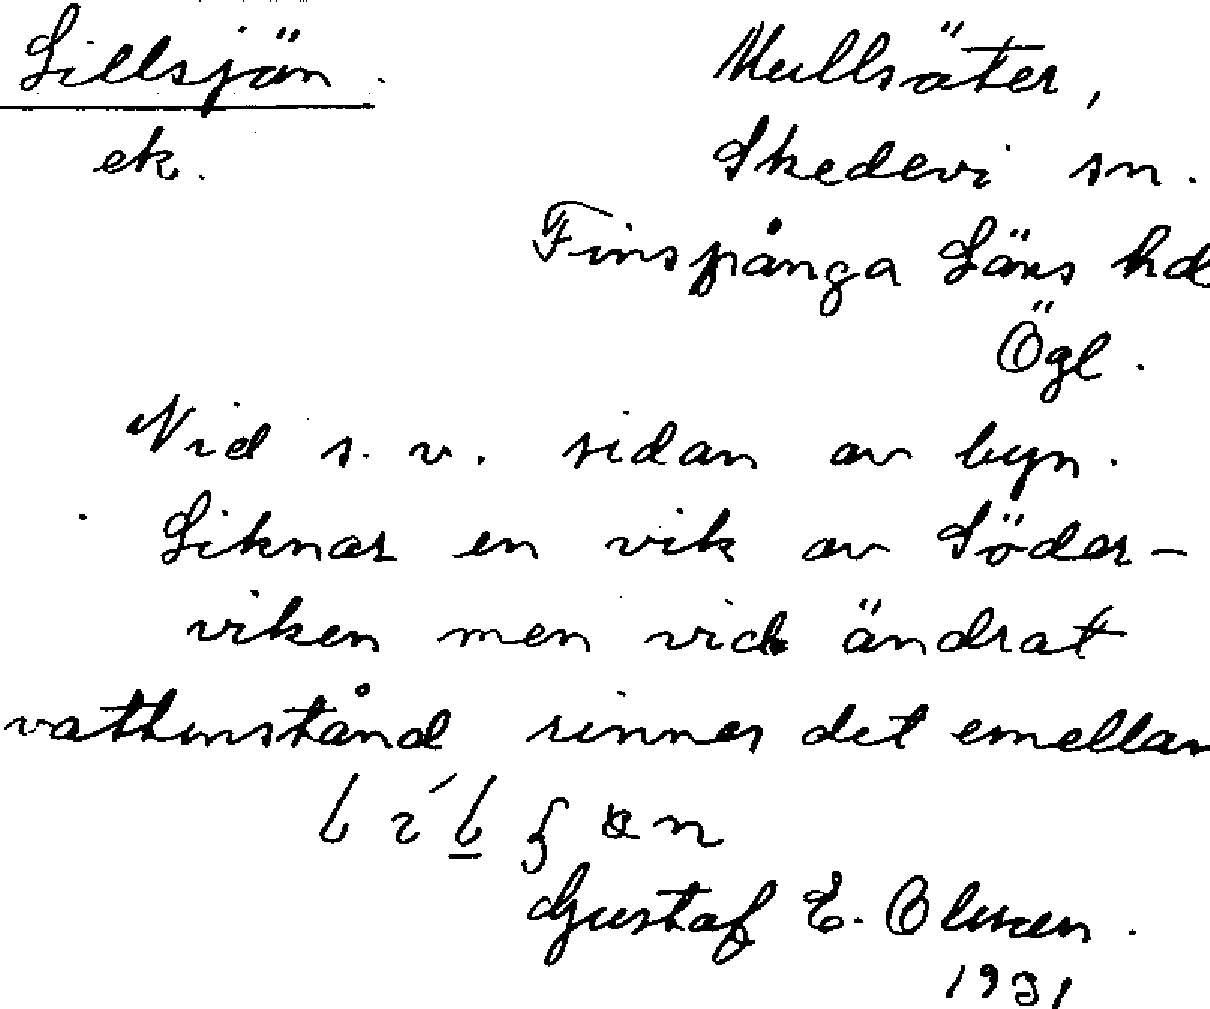 Lillsjön.
Mullsäter,
ek.
Skedevi sn.
Finspånga Läns hd
Ögl.
Vid s. v. sidan av byn.
Liknar en vik av Söder-
viken men vid ändrat
vattenstånd rinner det emellan
Gustaf E.
1931